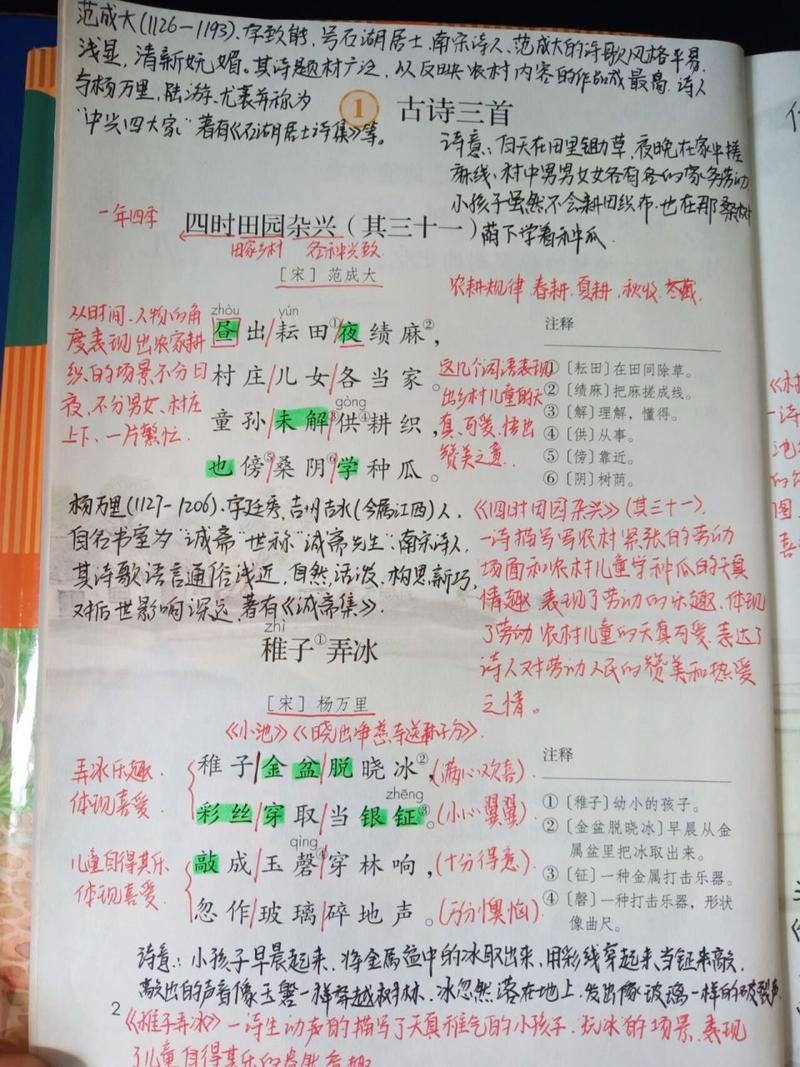 范成大(1126-1193).字致能,号石湖居士,南宋诗人、范成大的诗歌风格平易
浅显,清新妩媚。其诗题材广泛,以反映农村内容的作品成就最高.诗人
与杨万里,陆游,尤袤并称为
"中兴四大家"著有《石湖居士诗集》等。
1 古诗三首
诗意:白天在田里锄草,夜晚在家中搓
麻线、村中男男女女各有各的家务劳动
小孩子虽然不会耕田织布.也在那桑树
荫下学着种瓜.
一年四季
四时田园杂兴(其三十一)
田家乡村 各种兴致
[宋]范成大
农耕规律 春耕.夏耕,秋收.冬藏.
从时间、人物的角
度表现出农家耕
织的场景不分日
夜、不分男女、村庄
上下、一片繁忙.
zhòu yún
昼出/耘田①/夜绩麻②,
村庄/儿女/各当家。
gòng
童孙/未解③/供④耕织,
也傍⑤桑阴⑥/学种瓜。
这几个词语表现
出乡村儿童的天
真、可爱、
赞美之意.
注释
①〔耘田〕在田间除草。
②〔绩麻〕把麻搓成线。
③〔解〕理解,懂得。
④〔供〕从事。
⑤〔傍〕靠近。
⑥〔阴〕树荫。
杨万里(1127-1206).字廷秀,吉州吉水(今属江西)人,
自名书室为"诚斋"世称"诚斋先生".南宋诗人,
其诗歌语言通俗浅近,自然,活泼,构思新巧,
对后世影响深远.著有《诚斋集》.
《四时田园杂兴》(其三十一).
一诗描写写农村紧张的劳动
场面和农村儿童学种瓜的天真
情趣 表现了劳动的乐趣、体现
了劳动 农村儿童的天真可爱.表达了
诗人对劳动人民的赞美和热爱
之情。
zhì
稚子①弄冰
[宋]杨万里
《小池》《晓出净慈寺送林子方》.
弄冰乐趣.
体现喜爱.
稚子/金盆/脱晓冰②,(满心欢喜).
zhēng
彩丝/穿取/当银钲③。(小心翼翼)
儿童自得其乐、
体现喜爱.
qìng
敲成/玉磬④/穿林响,(十分得意).
忽作/玻璃/碎地声。(万分懊恼)
注释
①〔稚子〕幼小的孩子。
②〔金盆脱晓冰〕早晨从金
属盆里把冰取出来。
③〔钲〕一种金属打击乐器。
④〔磬〕一种打击乐器,形状
像曲尺。
诗意:小孩子早晨起来,将金属盆中的冰取出来,用彩线穿起来当钲来敲.
敲出的声音像玉磬一样穿越树林.冰忽然落在地上.发出像玻璃一样的破裂声.
2
《稚子弄冰》一诗生动的描写了天真稚气的小孩子.玩冰的场景.表现
了儿童自得其乐的